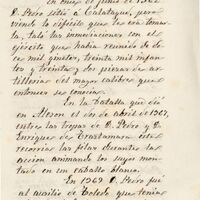 en enero de junio de 1362
D. Pedro sitió a Calatayud, pero
viendo lo difícil que le era tomar-
la, taló las inmediaciones con el
ejército que había reunido de do-
ce mil ginetes, treinta mil infan-
tes y treinta y dos piezas de ar-
tillería del mayor calibre que
entonces se conocía.
En la batalla que dió
en Aleson el dos de abril de 1367,
entre las tropas de D. Pedro y D.
Enrique de Trastamara, éste
recorría las filas durante la
acción animando los suyos mon-
tado en un caballo blanco.
En 1369 D. Pedro fué
al auxilio de Toledo que tenía